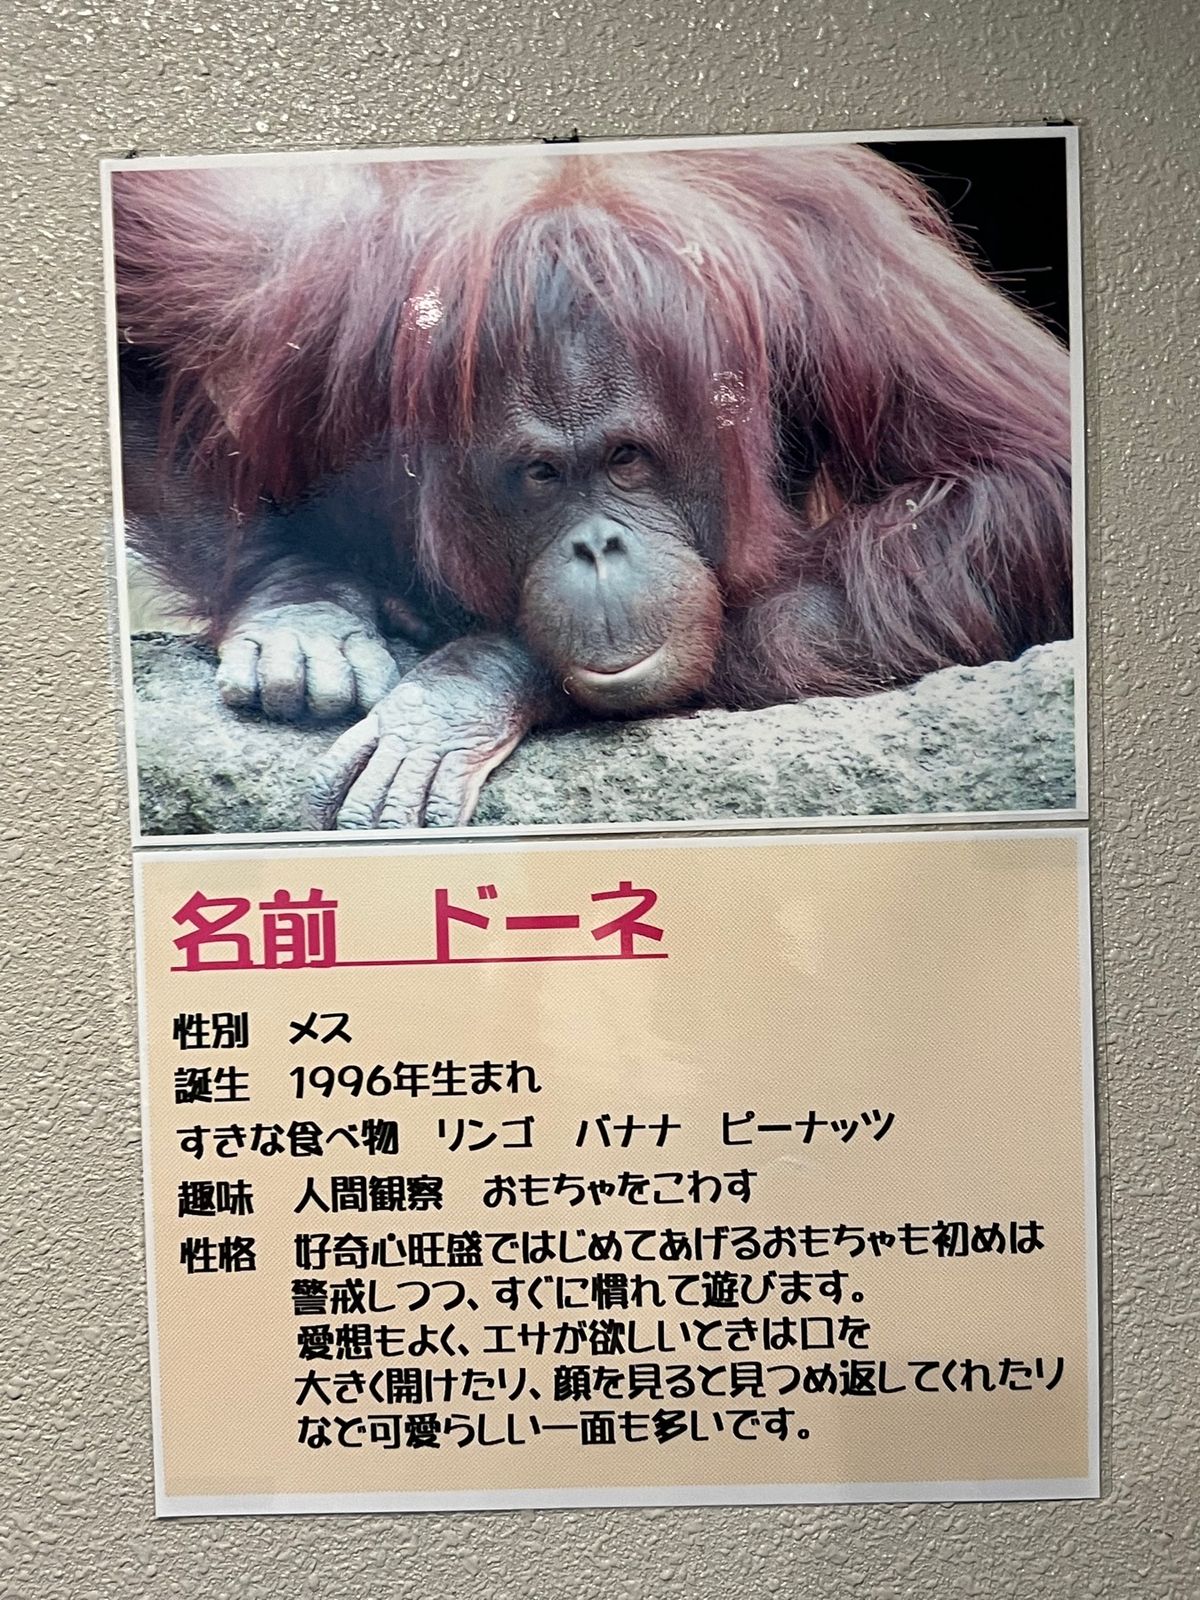 名前　ドーネ
性別　メス
誕生　1996年生まれ
すきな食べ物　リンゴ　バナナ　ピーナッツ
趣味　人間観察　おもちゃをこわす
性格　好奇心旺盛ではじめてあげるおもちゃも初めは
警戒しつつ、すぐに慣れて遊びます。
愛想もよく、エサが欲しいときは口を
大きく開けたり、顔を見ると見つめ返してくれたり
など可愛らしい一面も多いです。